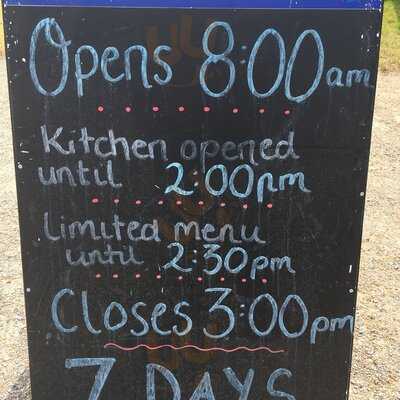 Opens 8:00am
Kitchen opened
until 2:00pm
Limited menu
until 2:30pm
Closes 3:00pm
7 DAYS